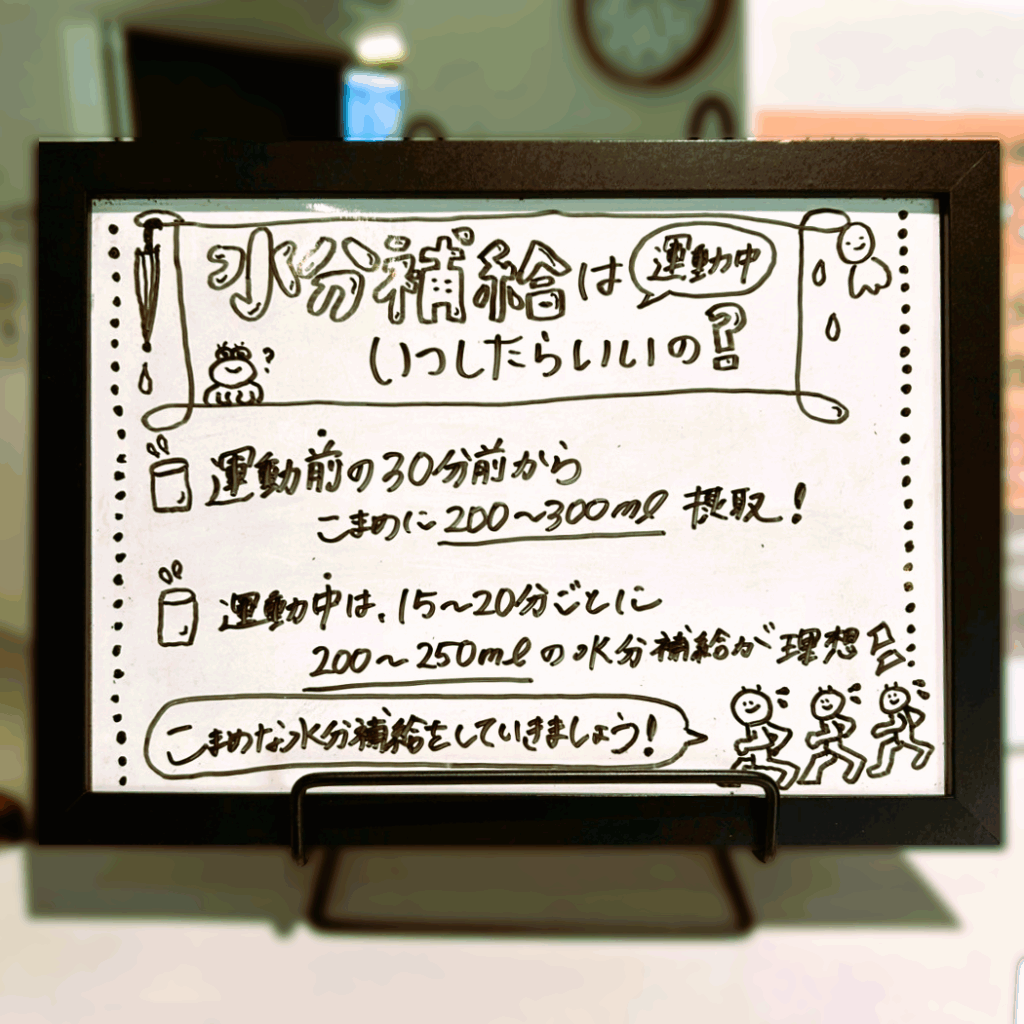 水分補給は 運動中
いつしたらいいの?
?
運動前の30分前から
こまめに200~300ml 摂取!
運動中は、15~20分ごとに
200~250mlの水分補給が理想
こまめな水分補給をしていきましょう!